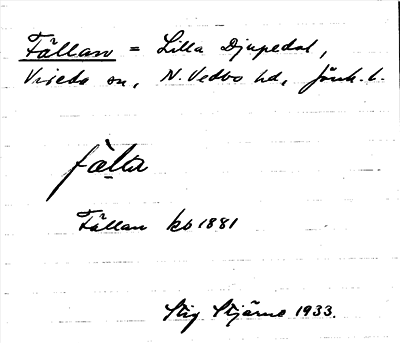 Fällan = Lilla Djupedal,
Vireda sn, N. Vedbo hd, Jönk. l.
fälta
Fällan kb 1881
Stig Stjärne 1933.